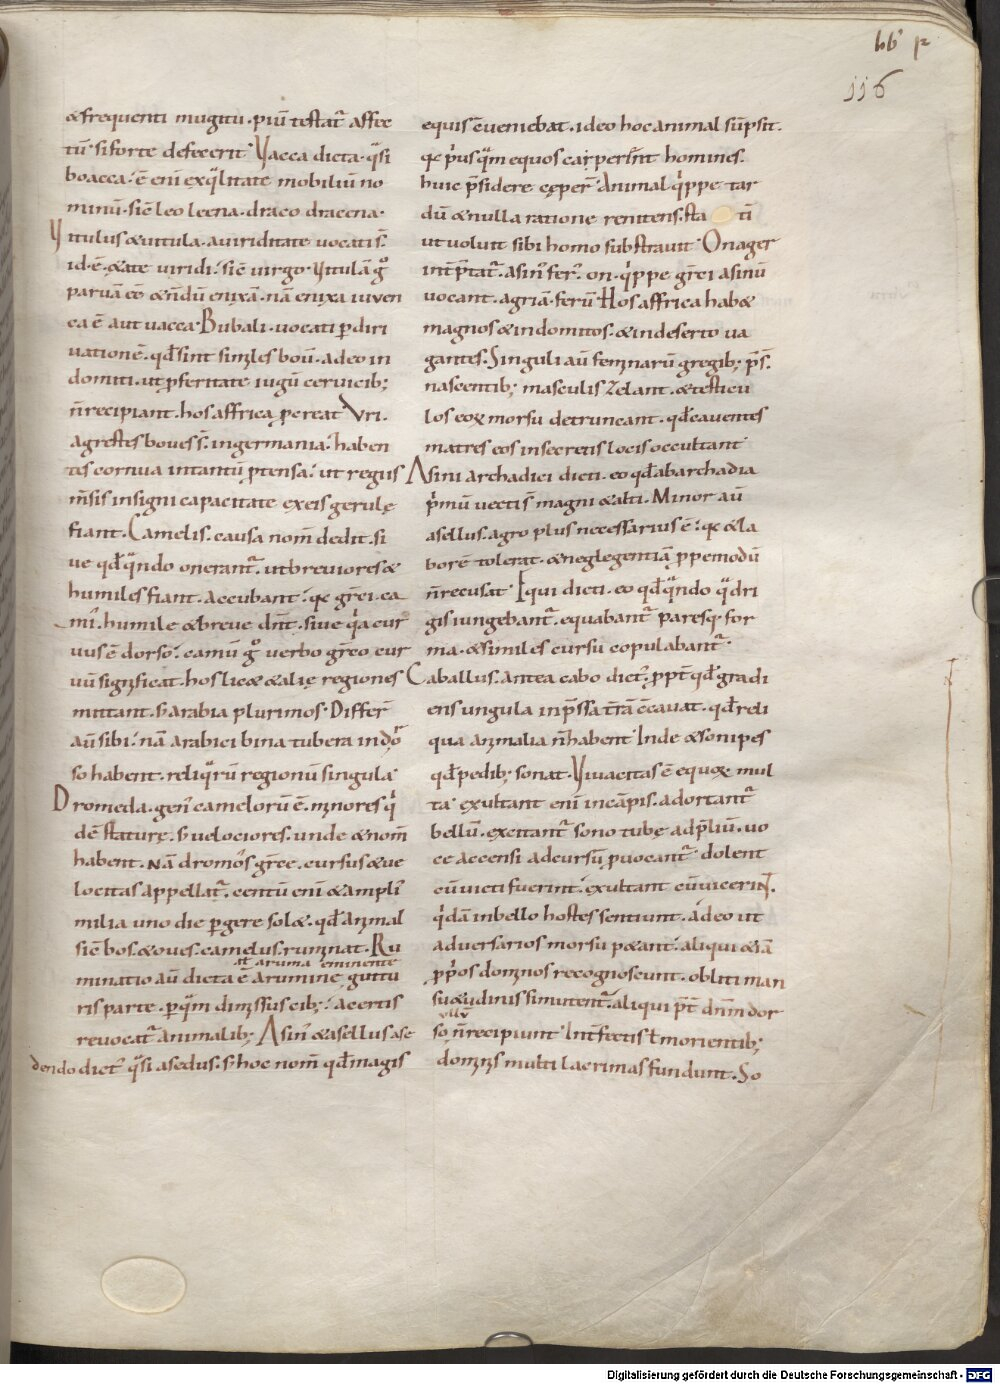 lib' p
116
&frequenti mugitu · piū testat᷑ affec
tū · si forte defecerit · Vacca dicta · q̄si
boacca · ē enī ex q̄litate mobiliū no
minū · sic̄ leo leena · draco dracena ·
Vitulus & uitula · a uiriditate uocati s̄ ·
id · ē · &ate uiridi · sic̄ uirgo · Vitulā g°
paruā eē & n̄dū enixā · nā enixa iuuen
ca ē aut uacca · Bubali · uocati p diri
uationē · qd̄ sint similes boū · adeo in
domiti · ut p feritate iugū ceruicib;
n̄ recipiant · hos affrica pcreat Vri ·
agrestes boues s̄ · in germania · haben
tes cornua in tantū ptensa · ut regiis
m̄sis insigni capacitate ex eis gerule
fiant · Camelis · causa nom̄ dedit · si
ue qd̄ q̄ndo onerant᷑ · ut breuiores &
humiles fiant · accubant · qe gręci ca
mi · humile & breue dn̄t · siue q̄a cur
uus ē dorso · camū g° uerbo gr̄eo cur
uū significat · hos lic& & alię regiones
mittant · s̄ arabia plurimos · Differ̄
aū sibi · nā arabici bina tubera in do
so habent · reliq̄rū regionū singula
Dromeda · gen᷑ camelorū ē · minores q̄
dē staturę · s̄ uelociores · unde & nom̄
habent · NĀ dromos gręce · cursus & ue
locitas appellat᷑ · centū enī & ampli᷑
milia uno die pgere sol& · qd̄ animal
sic̄ bos · & oues · camelus · ruminat · Ru
at aruma eminente
minatio aū dicta ē a rumine · guttu
ris parte · p q̄m dimissus cib; · a certis
reuocat᷑ animalib; Asin᷑ & asellus a se
dendo dict᷑ q̄si asedus · s̄ hoc nom̄ qd̄ magis
equis c̄ueniebat · ideo hoc animal sūpsit ·
qe p̄usq̄m equos caiper̄int homines ·
huic p̄sidere cęper̄ · Animal q̄ppe tar
dū & nulla ratione renitens · sta tī
ut uoluit sibi homo substrauit · Onager
int̄ptat᷑ · asin᷑ fer᷑ · on · q̄ppe gr̄ci asinū
uocant · agriā · ferū · Hos affrica hab&
magnos & indomitos · & in deserto ua
gantes · Singuli aū feminarū gregib; p̄s ·
nascentib; masculis zelant · & testicu
los eoꝝ morsu detruncant · qd̄ cauentes
matres eos in secretis locis occultant
Asini archadici dicti · eo qd̄ ab archadia
p̄mū uecti s̄ magni & alti · Minor aū
asellus · agro plus necessarius ē · qe & la
borē tolerat · & neglegentiā ppemodū
n̄ recusat · Equi dicti · eo qd̄ q̄ndo q̄dri
gis iungebant᷑ · equabant᷑ paresq · for
ma · & similes cursu copulabant᷑ ·
Caballus · antea cabo dict᷑ · ppt̄ qd̄ gradi
ens ungula in p̄ssa t̄rā c̄cauat · qd̄ reli
qua animalia n̄ habent · Inde & sonipes
qd̄ pedib; sonat · Viuacitas ē equoꝝ mul
ta · exultant enī in cāpis · adortant᷑
bellū · excitant᷑ sono tubę ad p̄liū · uo
ce accensi ad cursū puocant᷑ · dolent
cū uicti fuerint · exultant cū uicerint ·
q̄dā in bello hostes sentiunt · adeo ut
aduersarios morsu p&ant · aliqui & iā
pp̄os dominos recognoscunt · obliti man
su&udinis si mutent᷑ · aliqui p̄t dn̄m dor
ullū
so n̄ recipiunt · Int̄fectis ł morientib;
dominis multi lacrimas fundunt · So
Digitalisierung gefördert durch die Deutsche Forschungsgemeinschaft - DFG